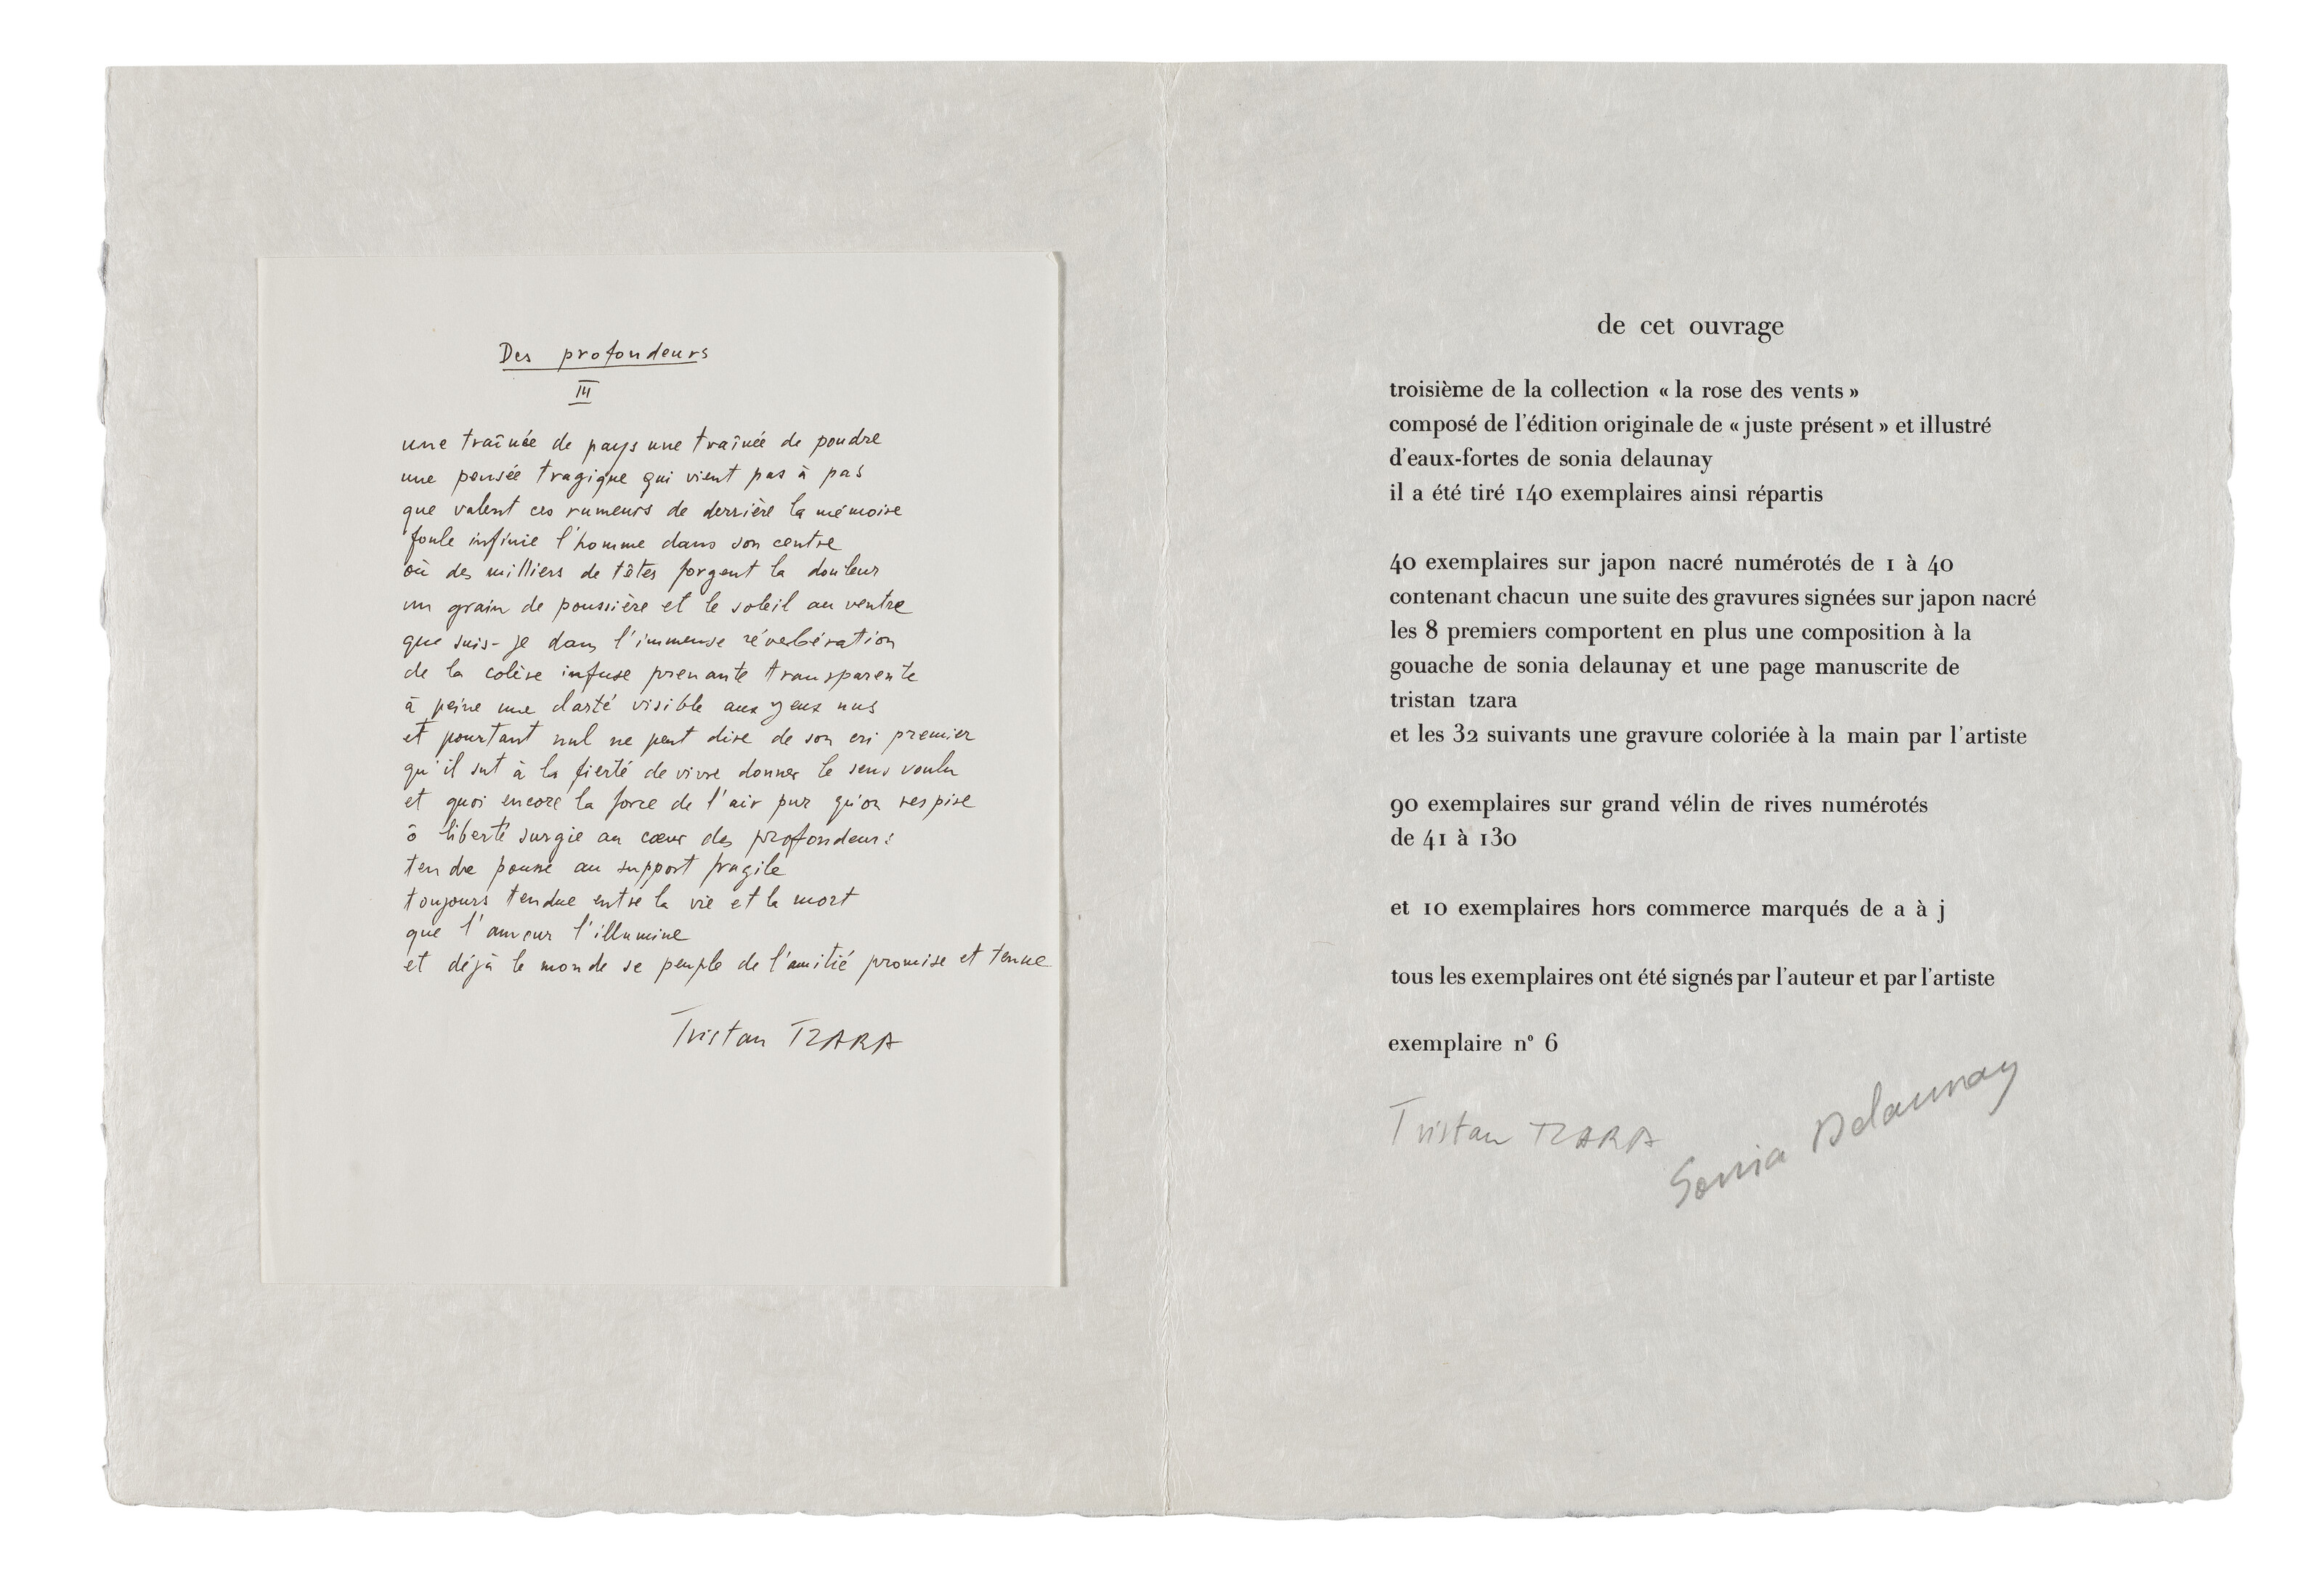 Des profondeurs
III
une traînée de pays une traînée de poudre
une pensée tragique qui vient pas à pas
que valent ces rumeurs de derrière la mémoire
foule infinie l'homme dans son centre
où des milliers de têtes forgent la douleur
un grain de poussière et le soleil au ventre
que suis-je dans l'immense réverbération
de la colère infuse prenante transparente
à peine une clarté visible aux yeux nus
et pourtant nul ne peut dire de son cri premier
qu'il sut à la fierté de vivre donner le sens voulu
et quoi encore la force de l'air pur qu'on respire
ô liberté surgie au cœur des profondeurs
tendre pousse au support fragile
toujours tendue entre la vie et la mort
que l'amour l'illumine
et déjà le monde se peuple de l'amitié promise et tenue
Tristan TZARA
de cet ouvrage
troisième de la collection « la rose des vents »
composé de l'édition originale de « juste présent » et illustré
d'eaux-fortes de sonia delaunay
il a été tiré 140 exemplaires ainsi répartis
40 exemplaires sur japon nacré numérotés de 1 à 40
contenant chacun une suite des gravures signées sur japon nacré
les 8 premiers comportent en plus une composition à la
gouache de sonia delaunay et une page manuscrite de
tristan tzara
et les 32 suivants une gravure coloriée à la main par l'artiste
90 exemplaires sur grand vélin de rives numérotés
de 41 à 130
et 10 exemplaires hors commerce marqués de a à j
tous les exemplaires ont été signés par l'auteur et par l'artiste
exemplaire n° 6
Tristan TZARA
Sonia Delaunay